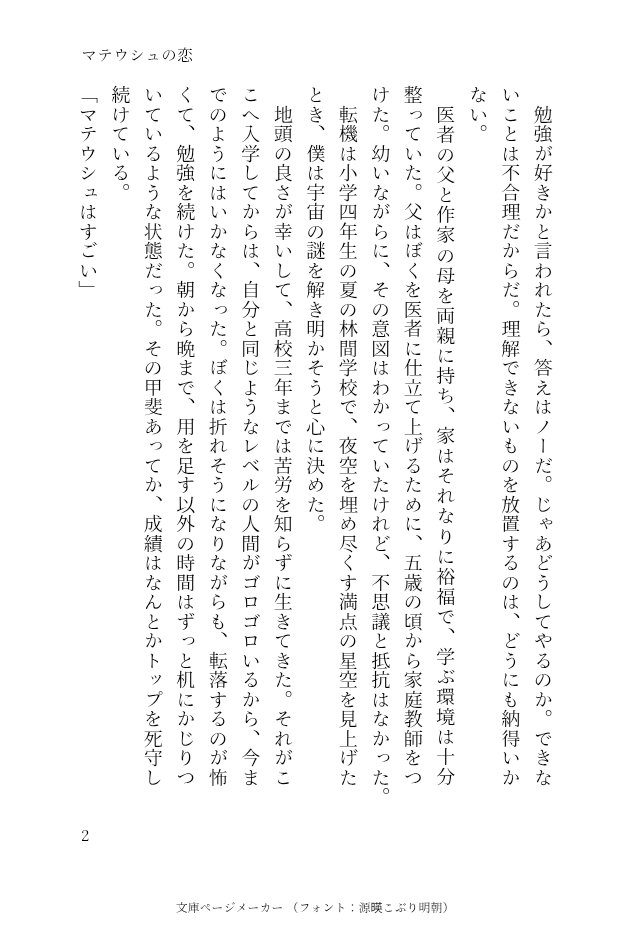 マテウシュの恋
勉強が好きかと言われたら、答えはノーだ。じゃあどうしてやるのか。できな
いことは不合理だからだ。理解できないものを放置するのは、どうにも納得いか
ない。
医者の父と作家の母を両親に持ち、家はそれなりに裕福で、学ぶ環境は十分
整っていた。父はぼくを医者に仕立て上げるために、五歳の頃から家庭教師をつ
けた。幼いながらに、その意図はわかっていたけれど、不思議と抵抗はなかった。
転機は小学四年生の夏の林間学校で、夜空を埋め尽くす満点の星空を見上げた
とき、僕は宇宙の謎を解き明かそうと心に決めた。
地頭の良さが幸いして、高校三年までは苦労を知らずに生きてきた。それがこ
こへ入学してからは、自分と同じようなレベルの人間がゴロゴロいるから、今ま
でのようにはいかなくなった。ぼくは折れそうになりながらも、転落するのが怖
くて、勉強を続けた。朝から晩まで、用を足す以外の時間はずっと机にかじりつ
いているような状態だった。その甲斐あってか、成績はなんとかトップを死守し
続けている。
「マテウシュはすごい」
2
文庫ページメーカー（フォント：源暎こぶり明朝）